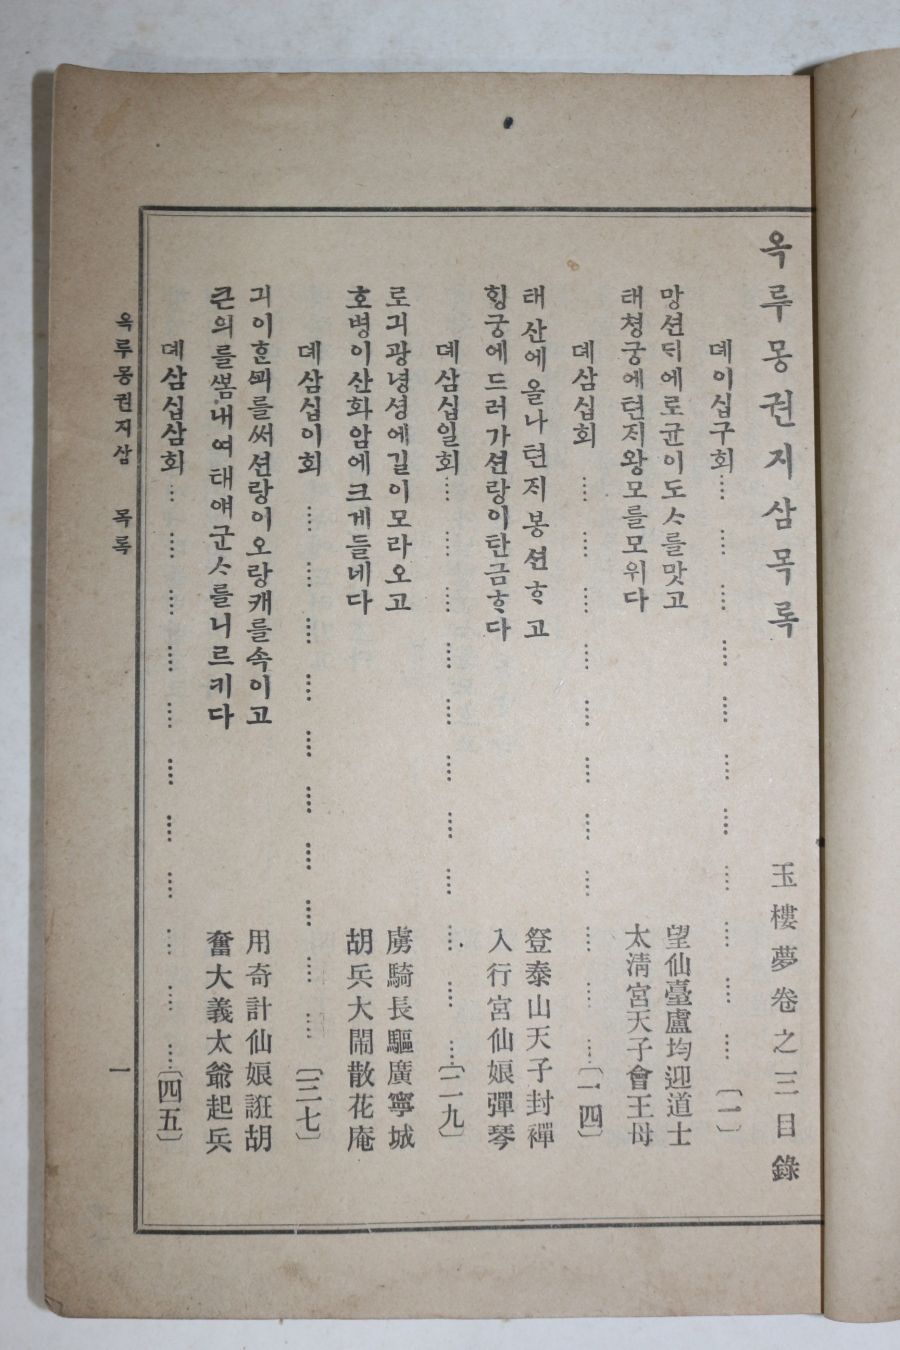 옥루몽권지삼목록 玉樓夢卷之三目錄
뎨이십구회………………………………〔一〕
망션ᄃᆡ에로균이도ᄉᆞ를맛고 望仙臺盧均迎道士
태쳥궁에텬ᄌᆡ왕모를모위다 太淸宮天子會王母
뎨삼십회………………………………〔一四〕
태산에올나텬ᄌᆡ봉션ᄒᆞ고 登泰山天子封禪
ᄒᆡᆼ궁에드러가션랑이탄금ᄒᆞ다 入行宮仙娘彈琴
뎨삼십일회………………………………〔二九〕
로긔광녕셩에길이모라오고 虜騎長驅廣寧城
호병이산화암에크게들네다 胡兵大鬧散花庵
뎨삼십이회………………………………〔三七〕
긔이ᄒᆞᆫᄭᅬ를써션랑이오랑캐를속이고 用奇計仙娘誑胡
큰의를ᄲᅩᆷ내여태얘군ᄉᆞ를니르키다 奮大義太爺起兵
뎨삼십삼회………………………………〔四五〕
옥루몽권지삼 목록 一